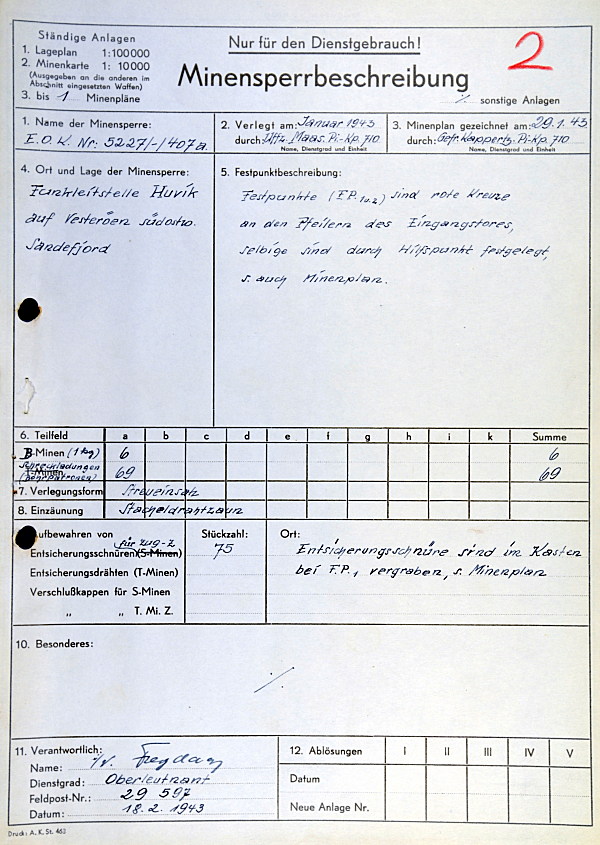 Ständige Anlagen
1. Lageplan 1:100000
2. Minenkarte 1: 10000
(Ausgegeben an die anderen im
Abschnitt eingesetzten Waffen)
3. bis 1 Minenpläne
Nur für den Dienstgebrauch!
Minensperrbeschreibung
2
·/. sonstige Anlagen
1. Name der Minensperre:
E.O.K. Nr. 5227/-/407a
2. Verlegt am: Januar 1943
durch: Uffz. Maas. Pi-Kp. 710
Name, Dienstgrad und Einheit
3. Minenplan gezeichnet am: 29.1.43
durch: Gefr. Kappertz. Pi-Kp. 710
Name, Dienstgrad und Einheit
4. Ort und Lage der Minensperre:
Funkleitstelle Huvik
auf Vesteröen südostw.
Sandefjord
5. Festpunktbeschreibung:
Festpunkte (F.P. 1u.2) sind rote Kreuze
an den Pfeilern des Eingangstores,
selbige sind durch Hilfspunkt festgelegt,
s. auch Minenplan.
6. Teilfeld a b c d e f g h i k Summe
B-Minen (1 kg) 6 6
T-Minen 69 69
(Bohrpatronen)
7. Verlegungsform Streueinsatz
8. Einzäunung Stacheldrahtzaun
Aufbewahren von Stückzahl: Ort:
für Zug-Z
Entsicherungsschnüren (S-Minen) 75 Entsicherungsschnüre sind im Kasten
Entsicherungsdrähten (T-Minen) bei F.P.1 vergraben, s. Minenplan
Verschlußkappen für S-Minen
" " T. Mi. Z.
10. Besonderes:
·/.
11. Verantwortlich:
Name:
Dienstgrad: Oberleutnant
Feldpost-Nr.: 29 597
Datum: 18.2.1943
12. Ablösungen I II III IV V
Datum
Neue Anlage Nr.
Druck: A. K. St. 463